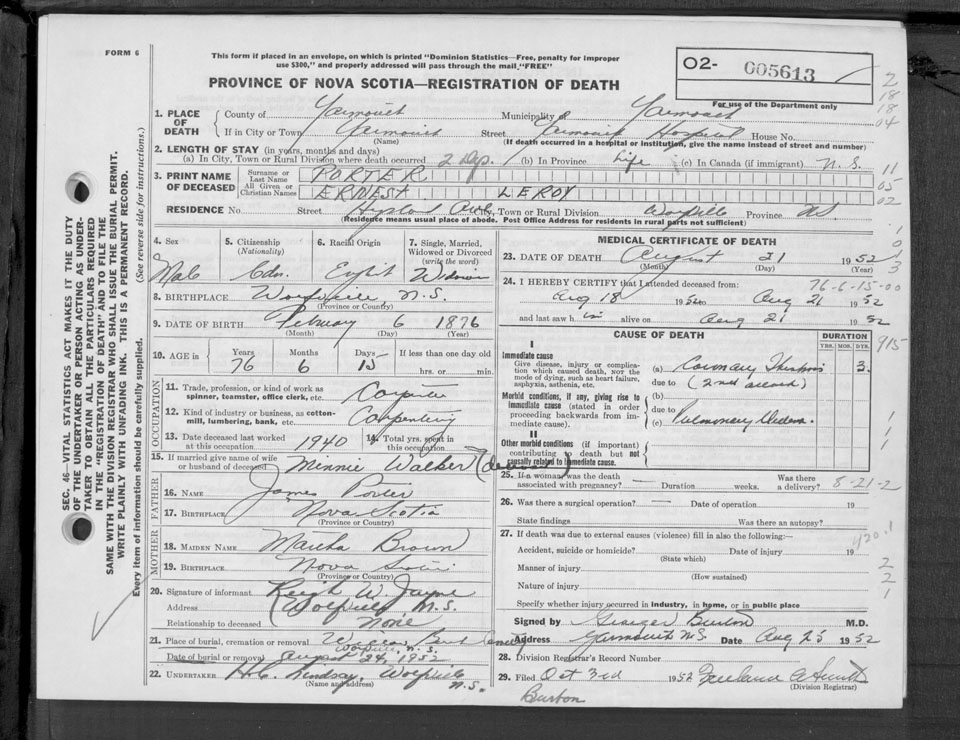 FORM 6
This form if placed in an envelope, on which is printed "Dominion Statistics—Free, penalty for improper
use $300," and properly addressed will pass through the mail, "FREE"
PROVINCE OF NOVA SCOTIA—REGISTRATION OF DEATH
O2- 005613
For use of the Department only
1. PLACE OF DEATH
County of Yarmouth Municipality of Yarmouth
If in City or Town Yarmouth Street Yarmouth Hospital House No.
(Name) (If death occurred in a hospital or institution, give the name instead of street and number)
2. LENGTH OF STAY (in years, months and days)
(a) In City, Town or Rural Division where death occurred 2 Dys. (b) In Province Life (c) In Canada (if immigrant) N.S.
3. PRINT NAME OF DECEASED
Surname or Last Name PORTER
All Given or Christian Names ERNEST LEROY
RESIDENCE No. Street City, Town or Rural Division Wolfville Province NS
(Residence means usual place of abode. Post Office Address for residents in rural parts not sufficient)
4. Sex Male
5. Citizenship (Nationality) Cdn.
6. Racial Origin English
7. Single, Married, Widowed or Divorced (write the word) Widower
8. BIRTHPLACE Wolfville N.S.
(Province or Country)
9. DATE OF BIRTH February 6 1876
(Month) (Day) (Year)
10. AGE in Years 76 Months 6 Days 15 If less than one day old hrs. or min.
OCCUPATION
11. Trade, profession, or kind of work as spinner, teamster, office clerk, etc. Carpenter
12. Kind of industry or business, as cotton-mill, lumbering, bank, etc. Carpentering
13. Date deceased last worked at this occupation 1940 14. Total yrs. spent in this occupation
15. If married give name of wife or husband of deceased Minnie Walker (deceased)
FATHER
16. NAME James Porter
17. BIRTHPLACE Nova Scotia
(Province or Country)
MOTHER
18. MAIDEN NAME Martha Brown
19. BIRTHPLACE Nova Scotia
(Province or Country)
20. Signature of informant W.
Address Wolfville N.S.
Relationship to deceased None
21. Place of burial, cremation or removal Willow Bank Cemetery
Wolfville, N.S.
Date of burial or removal August 24, 1952
22. UNDERTAKER H.C. Lindsay, Wolfville N.S.
(Name and address)
MEDICAL CERTIFICATE OF DEATH
23. DATE OF DEATH August 21 1952
(Month) (Day) (Year)
76-6-15-00
24. I HEREBY CERTIFY that I attended deceased from:
Aug 18 1952 to Aug 21 1952
and last saw him alive on Aug 21 1952
CAUSE OF DEATH DURATION
YRS. MOS. DYS.
I
Immediate cause
Give disease, injury or complication which caused death, not the mode of dying, such as heart failure, asphyxia, asthenia, etc.
(a) Coronary Thrombosis 3.
due to (2nd attack)
Morbid conditions, if any, giving rise to immediate cause (stated in order proceeding backwards from immediate cause).
(b)
due to
(c) Pulmonary Oedema.
II
Other morbid conditions (if important) contributing to death but not causally related to immediate cause.
25. If a woman was the death associated with pregnancy? — Duration weeks. Was there a delivery? 8-21-2
26. Was there a surgical operation? — Date of operation 19
State findings Was there an autopsy?
27. If death was due to external causes (violence) fill in also the following:—
Accident, suicide or homicide? Date of injury 19
(State which)
Manner of injury
(How sustained)
Nature of injury
Specify whether injury occurred in industry, in home, or in public place
Signed by George Burton M.D.
Address Yarmouth N.S. Date Aug 25 1952
28. Division Registrar's Record Number
29. Filed Oct 3rd 1952
(Division Registrar)
Burton
SEC. 46—VITAL STATISTICS ACT MAKES IT THE DUTY
OF THE UNDERTAKER OR PERSON ACTING AS UNDER-
TAKER TO OBTAIN ALL THE PARTICULARS REQUIRED
IN THE "REGISTRATION OF DEATH" AND TO FILE THE
SAME WITH THE DIVISION REGISTRAR WHO SHALL ISSUE THE BURIAL PERMIT.
WRITE PLAINLY WITH UNFADING INK. THIS IS A PERMANENT RECORD.
Every item of information should be carefully supplied. (See reverse side for instructions.)
2
18
18
04
11
05
02
1
0
1
2
3
915
1
1
1
420.1
2
2
1